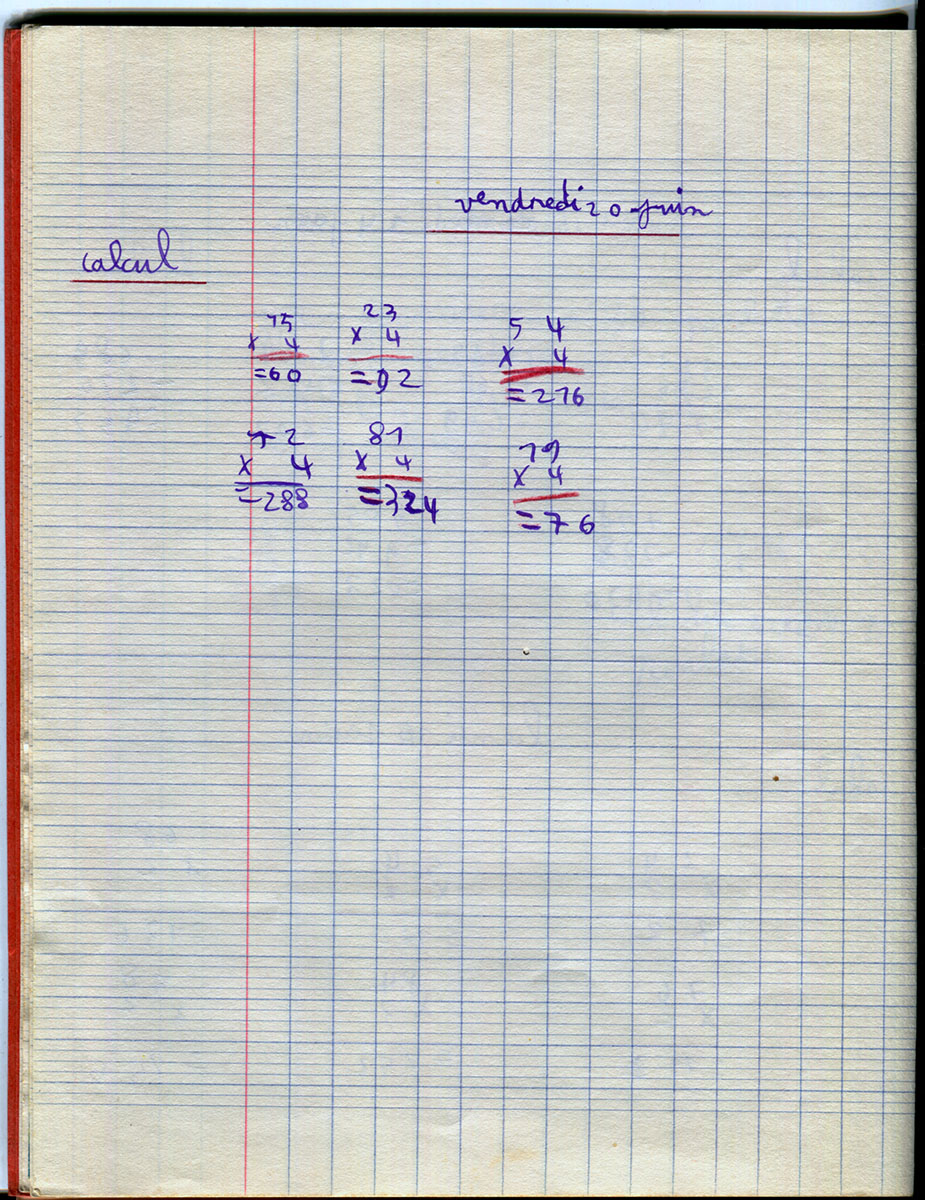 vendredi 20 juin
calcul
15 23 54
x 4 x 4 x 4
=60 =92 =216
72 81 19
x 4 x 4 x 4
=288 =324 =76